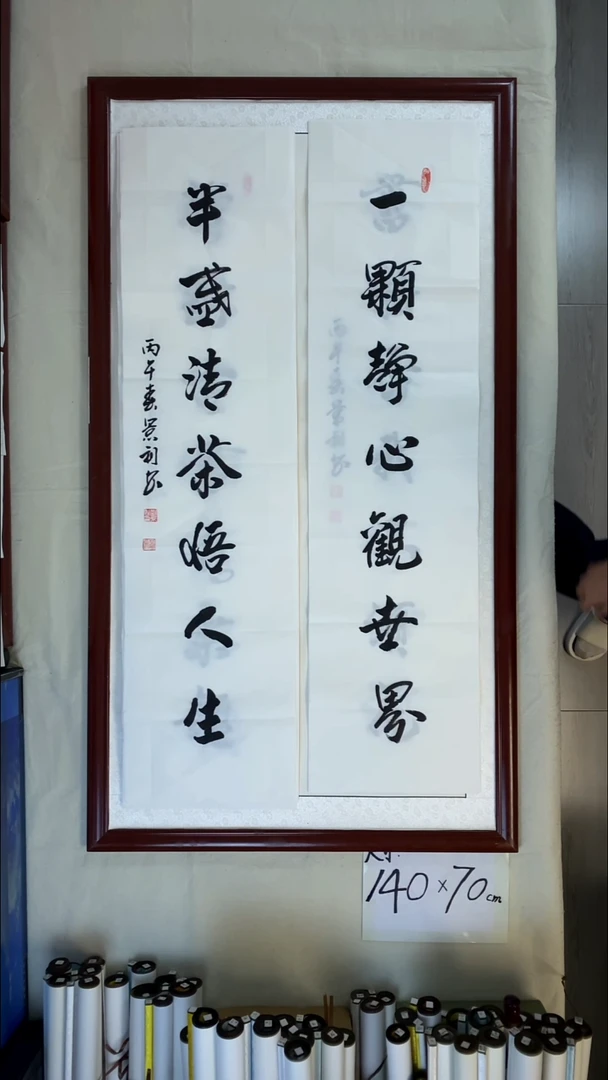 一顆靜心觀世界
半盞清茶悟人生
丙午春景
140×70cm